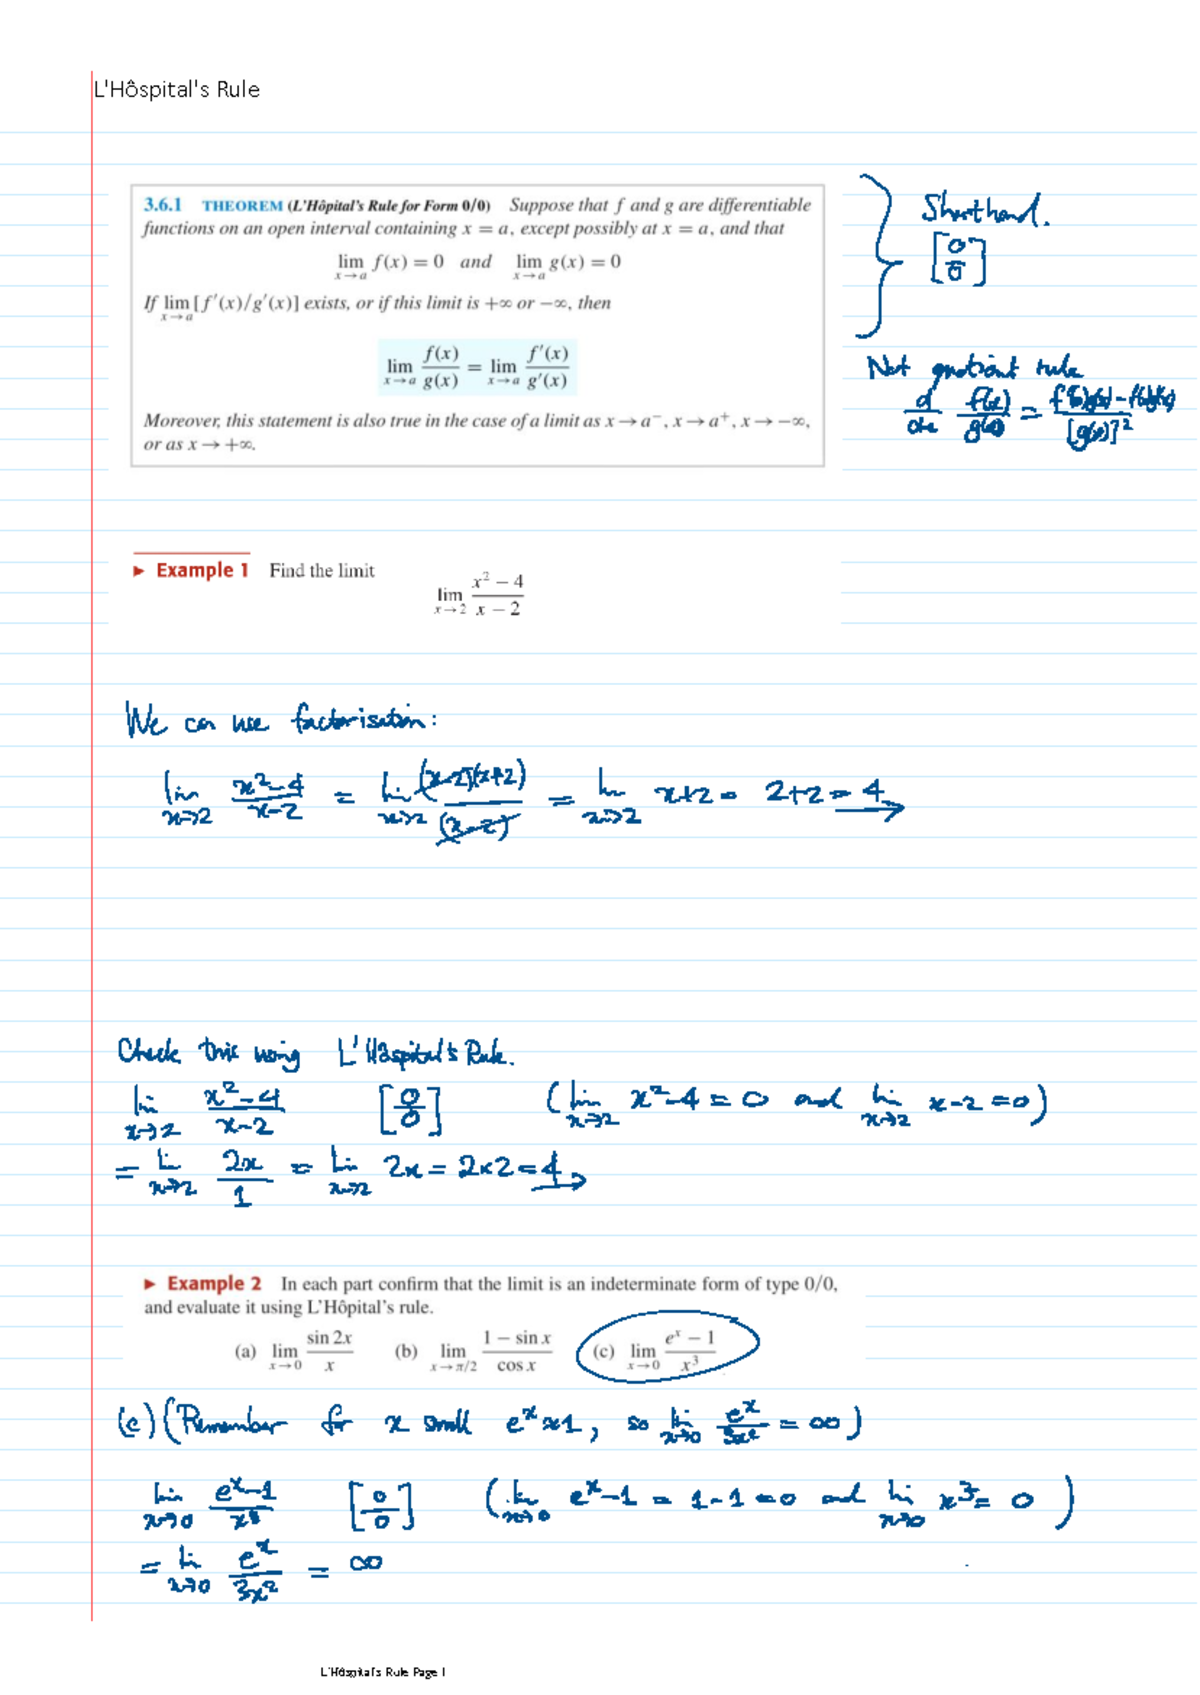 L'Hôspital's Rule
3.6.1 THEOREM (L'Hôpital's Rule for Form 0/0) Suppose that f and g are differentiable
functions on an open interval containing x = a, except possibly at x = a, and that
lim x→a f(x) = 0 and lim x→a g(x) = 0
If lim x→a [f′(x)/g′(x)] exists, or if this limit is +∞ or −∞, then
lim x→a f(x)/g(x) = lim x→a f′(x)/g′(x)
Moreover, this statement is also true in the case of a limit as x → a⁻, x → a⁺, x → −∞,
or as x → +∞.
Shorthand.
[0/0]
Not quotient rule
d/dx f(x)/g(x) = f'(x)g(x) - f(x)g'(x)/[g(x)]²
► Example 1 Find the limit
lim x→2 x² − 4 / x − 2
We can use factorisation:
lim x→2 x²-4/x-2 = lim x→2 (x-2)(x+2)/(x-2) = lim x→2 x+2 = 2+2 = 4
Check this using L'Hôspital's Rule.
lim x→2 x²-4/x-2 [0/0] (lim x→2 x²-4 = 0 and lim x→2 x-2 = 0)
= lim x→2 2x/1 = lim x→2 2x = 2×2 = 4
► Example 2 In each part confirm that the limit is an indeterminate form of type 0/0,
and evaluate it using L'Hôpital's rule.
(a) lim x→0 sin 2x / x (b) lim x→π/2 1 − sin x / cos x (c) lim x→0 eˣ − 1 / x³
(c) (Remember for x small eˣ ≈ 1, so lim x→0 eˣ/3x² = ∞)
lim x→0 eˣ-1/x³ [0/0] (lim x→0 eˣ-1 = 1-1 = 0 and lim x→0 x³ = 0)
= lim x→0 eˣ/3x² = ∞
L'Hôspital's Rule Page 1